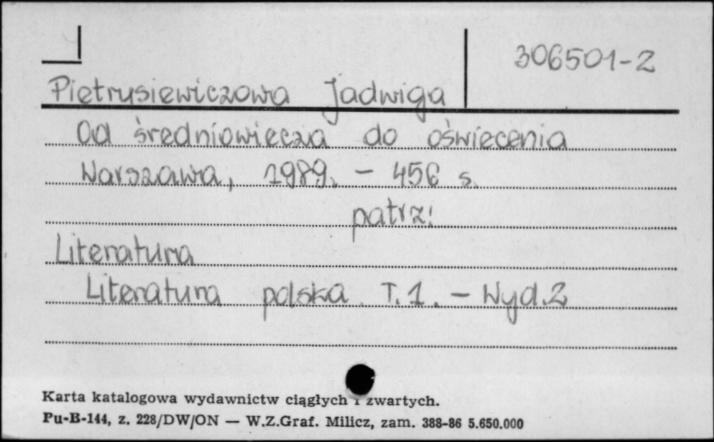 306501-2
Pietrusiewiczowa Jadwiga
Od średniowiecza do oświecenia
Warszawa, 1989. - 456 s.
patrz:
Literatura
Literatura polska. T.1. - Wyd.2
Karta katalogowa wydawnictw ciągłych i zwartych.
Pu-B-144, z. 228/DW/ON — W.Z.Graf. Milicz, zam. 388-86 5.650.000